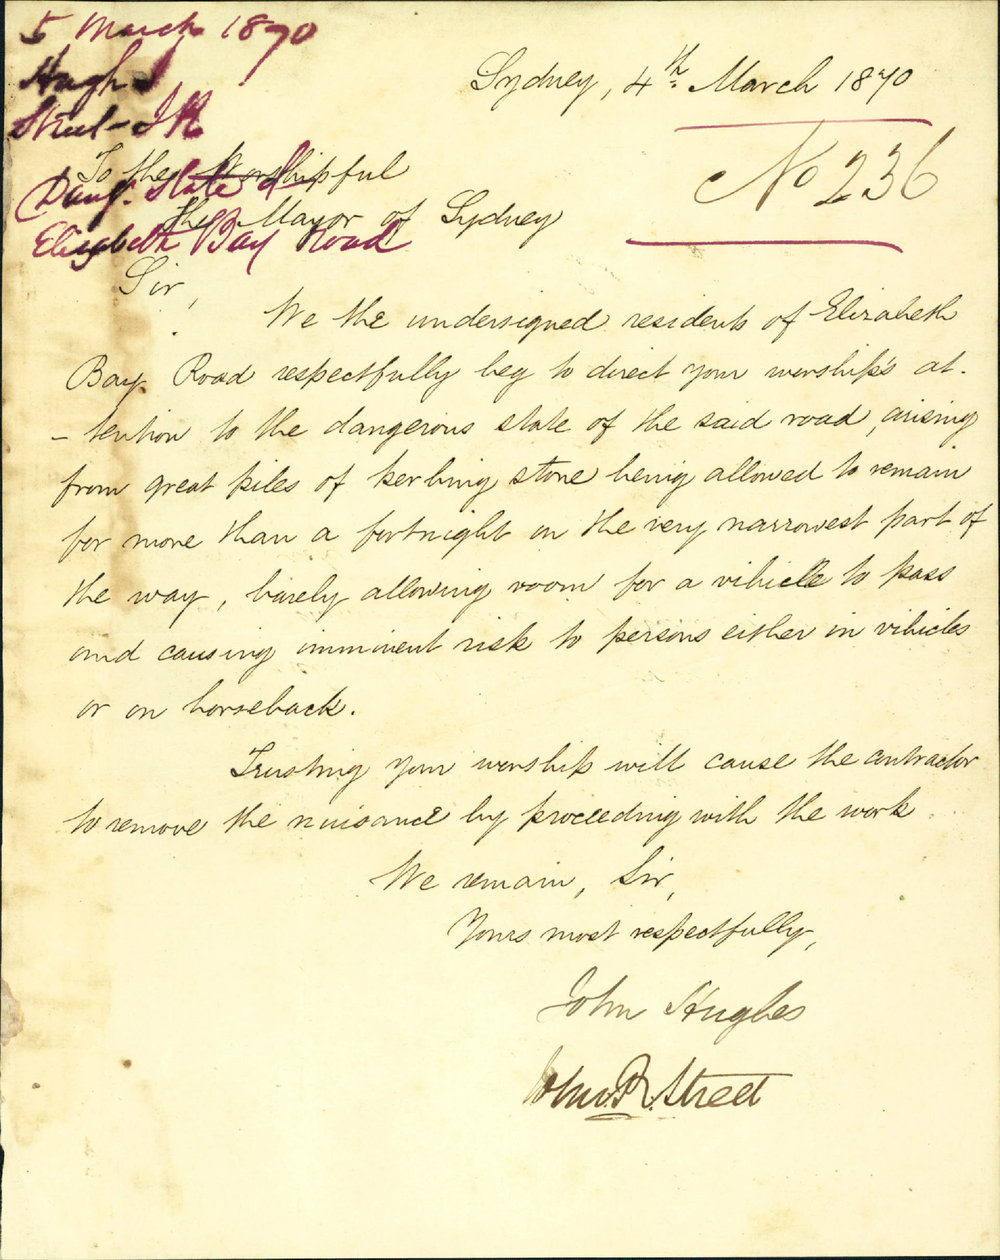 5 March 1870
Hugh J
Street - J R
Dang. State of
Elizabeth Bay Road
Sydney, 4th March 1870
No 236
To the Worshipful
The Mayor of Sydney
Sir,
We the undersigned residents of Elizabeth
Bay Road respectfully beg to direct your worship's at-
-tention to the dangerous state of the said road, arising
from great piles of kerbing stone being allowed to remain
for more than a fortnight on the very narrowest part of
the way, barely allowing room for a vihicle to pass
and causing imminent risk to persons either in vihicles
or on horseback.
Trusting your worship will cause the contractor
to remove the nuisance by proceeding with the work
We remain, Sir,
Yours most respectfully,
John Hughes
John R. Street